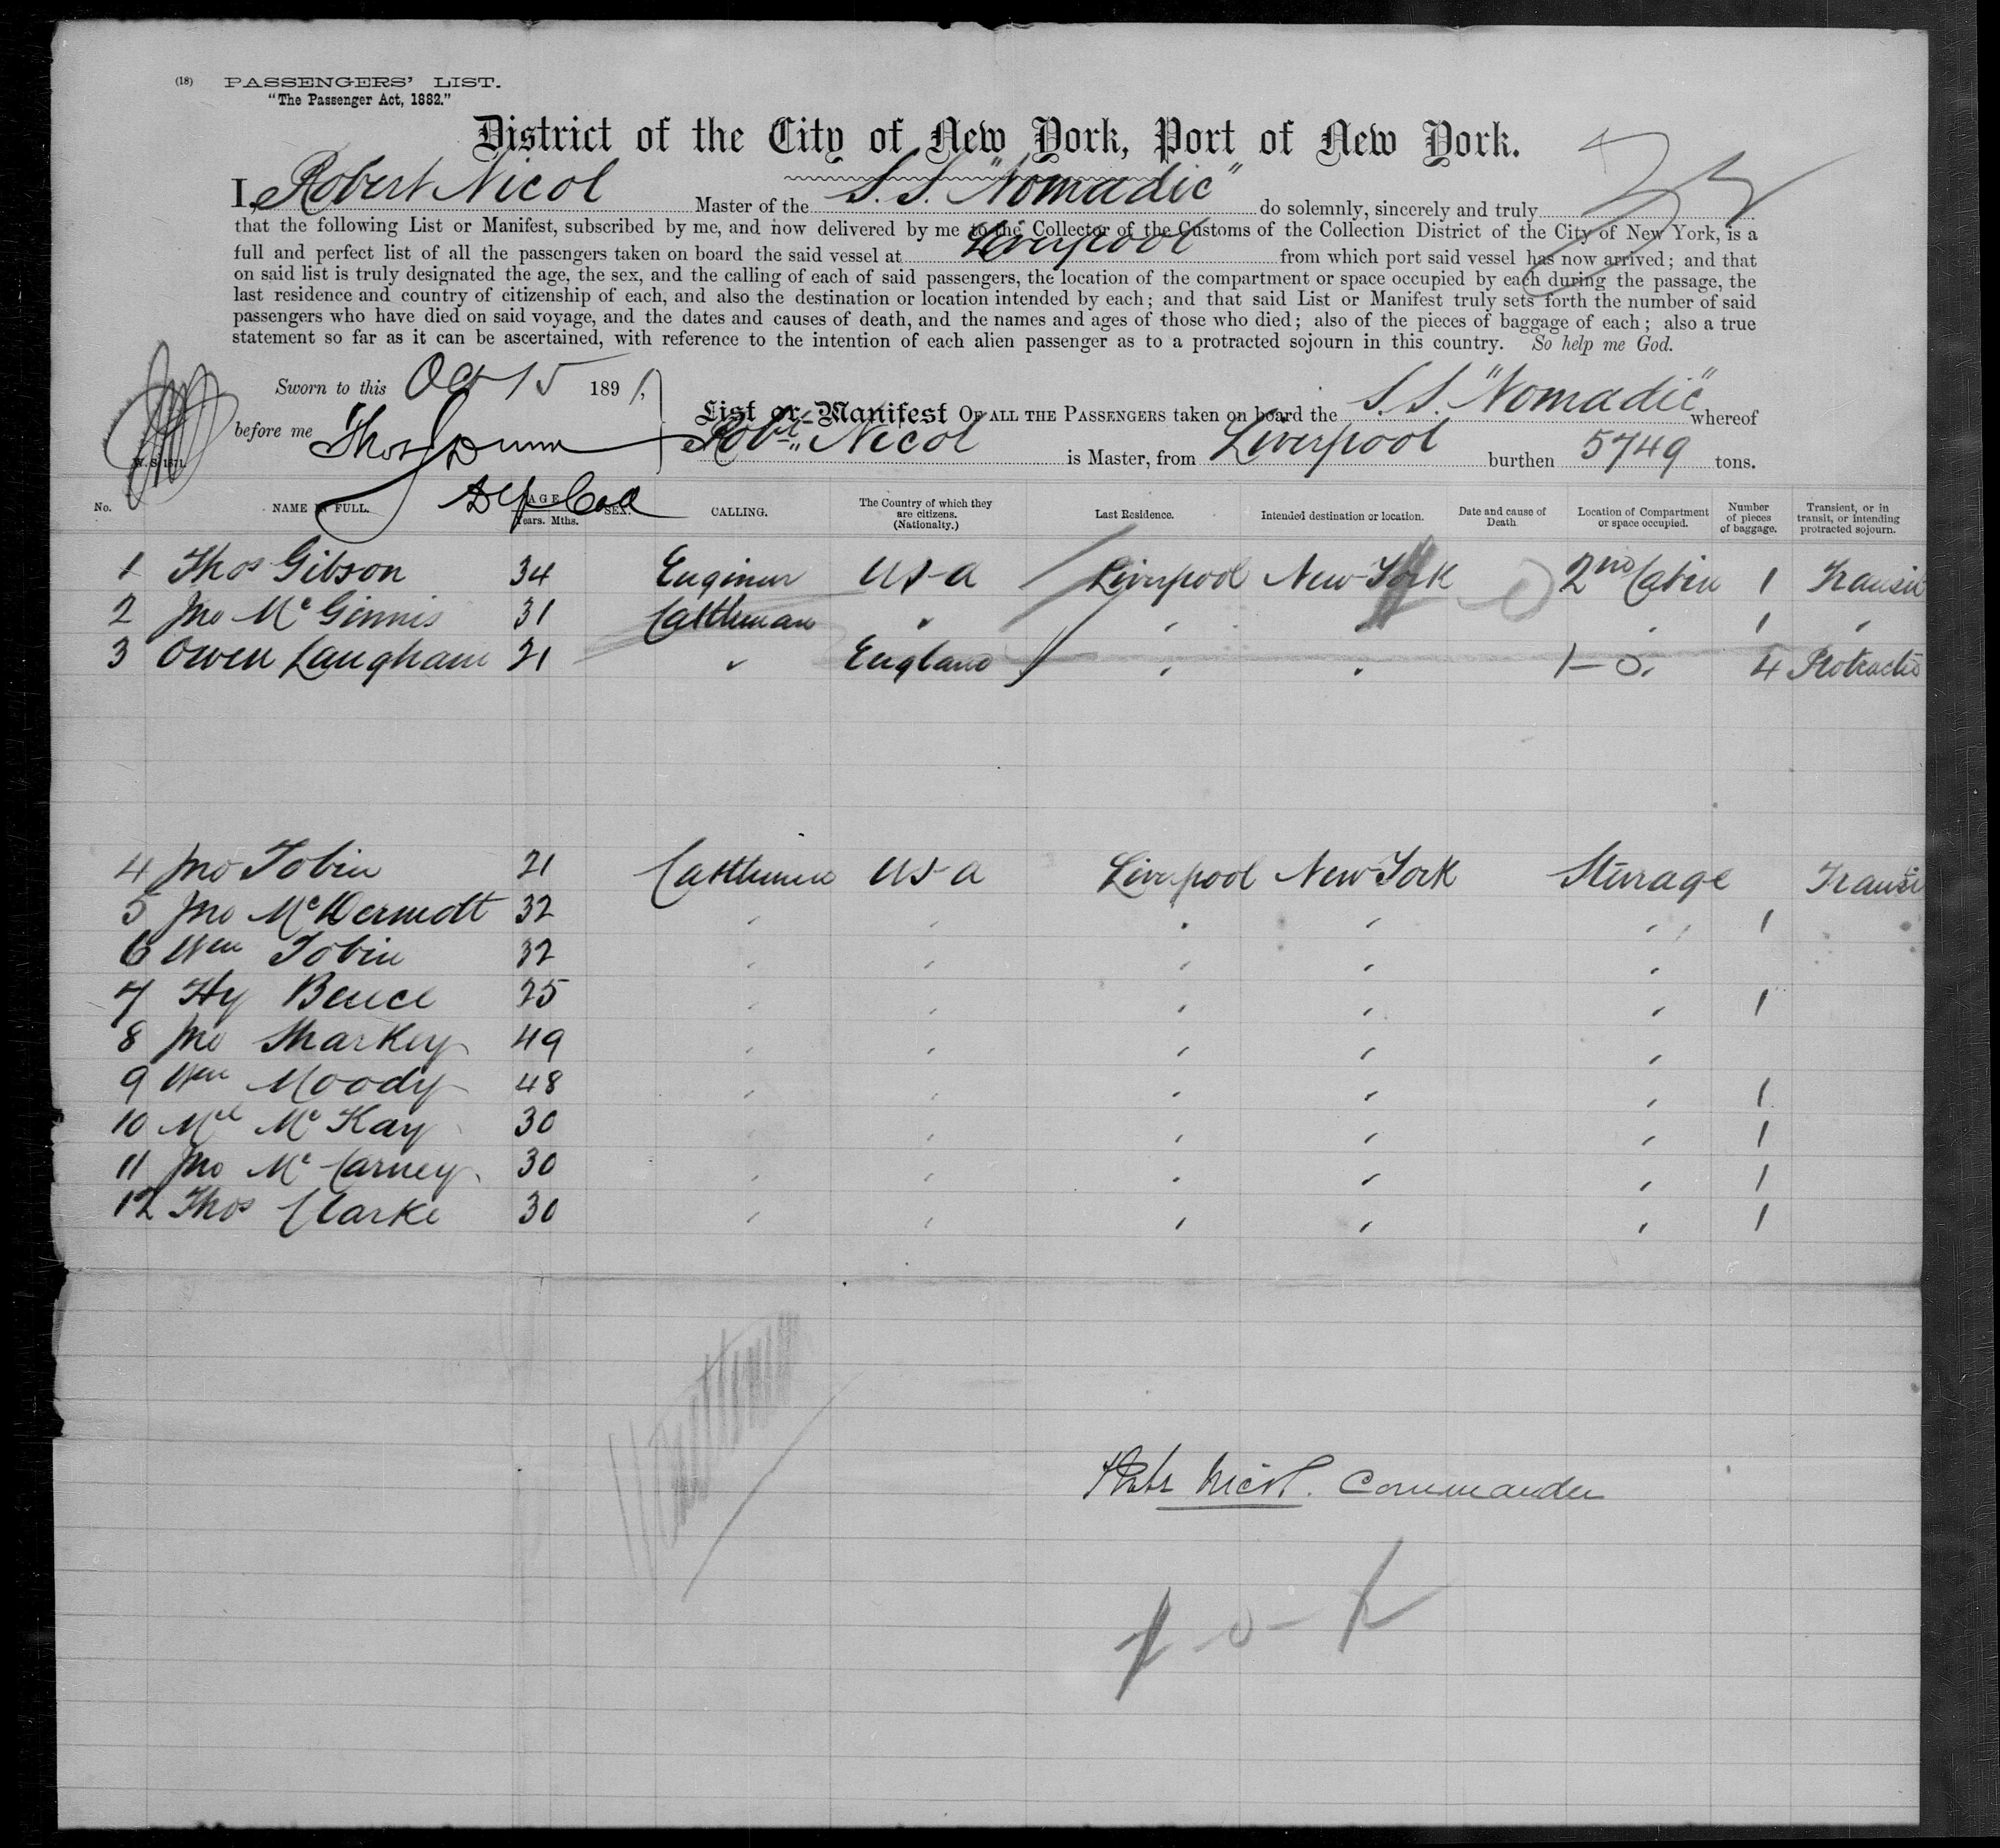 (18) PASSENGERS' LIST.
"The Passenger Act, 1882."
District of the City of New York, Port of New York.
I, Robert Nicol Master of the S.S. "Nomadic" do solemnly, sincerely and truly
that the following List or Manifest, subscribed by me, and now delivered by me to the Collector of the Customs of the Collection District of the City of New York, is a
full and perfect list of all the passengers taken on board the said vessel at Liverpool from which port said vessel has now arrived; and that
on said list is truly designated the age, the sex, and the calling of each of said passengers, the location of the compartment or space occupied by each during the passage, the
last residence and country of citizenship of each, and also the destination or location intended by each; and that said List or Manifest truly sets forth the number of said
passengers who have died on said voyage, and the dates and causes of death, and the names and ages of those who died; also of the pieces of baggage of each; also a true
statement so far as it can be ascertained, with reference to the intention of each alien passenger as to a protracted sojourn in this country. So help me God.
Sworn to this Oct 15 1891,
before me Thos Dunn
Dep Coll
W. S. 1871.
List or Manifest OF ALL THE PASSENGERS taken on board the S.S. "Nomadic" whereof
Robt Nicol is Master, from Liverpool burthen 5749 tons.
No. NAME IN FULL. AGE Years. Mths. SEX. CALLING. The Country of which they are citizens. (Nationalty.) Last Residence. Intended destination or location. Date and cause of Death. Location of Compartment or space occupied. Number of pieces of baggage. Transient, or in transit, or intending protracted sojourn.
1 Thos Gibson 34 Engineer USA Liverpool New York 2nd Cabin 1 Transit
2 Jno McGinnis 31 Cattleman " " " " 1 "
3 Owen Langham 21 " England " " 1-0. 4 Protracted
4 Jno Tobin 21 Cattlemen USA Liverpool New York Steerage Transi
5 Jno McDermott 32 " " " " " 1
6 Wm Tobin 32 " " " " "
7 Hy Bence 25 " " " " " 1
8 Jno Sharkey 49 " " " " "
9 Wm Moody 48 " " " " " 1
10 Ml McKay 30 " " " " 1
11 Jno McCarney 30 " " " " " 1
12 Thos Clarke 30 " " " " " 1
Robt Nicol. Commander